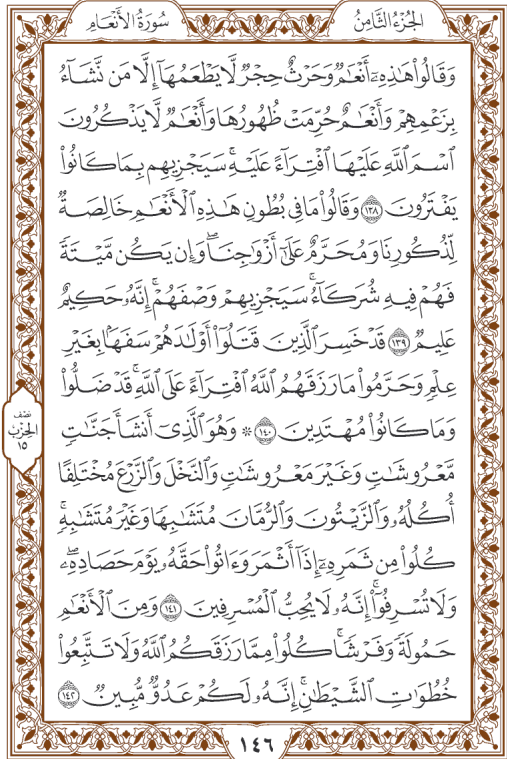 الجُزءُ الثَّامِنُ
سُورَةُ الأَنْعَامِ
وَقَالُواْ هَٰذِهِۦٓ أَنۡعَٰمٞ وَحَرۡثٌ حِجۡرٞ لَّا يَطۡعَمُهَآ إِلَّا مَن نَّشَآءُ
بِزَعۡمِهِمۡ وَأَنۡعَٰمٌ حُرِّمَتۡ ظُهُورُهَا وَأَنۡعَٰمٞ لَّا يَذۡكُرُونَ
ٱسۡمَ ٱللَّهِ عَلَيۡهَا ٱفۡتِرَآءً عَلَيۡهِۚ سَيَجۡزِيهِم بِمَا كَانُواْ
يَفۡتَرُونَ ١٣٨ وَقَالُواْ مَا فِي بُطُونِ هَٰذِهِ ٱلۡأَنۡعَٰمِ خَالِصَةٞ
لِّذُكُورِنَا وَمُحَرَّمٌ عَلَىٰٓ أَزۡوَٰجِنَاۖ وَإِن يَكُن مَّيۡتَةٗ
فَهُمۡ فِيهِ شُرَكَآءُۚ سَيَجۡزِيهِمۡ وَصۡفَهُمۡۚ إِنَّهُۥ حَكِيمٌ
عَلِيمٞ ١٣٩ قَدۡ خَسِرَ ٱلَّذِينَ قَتَلُوٓاْ أَوۡلَٰدَهُمۡ سَفَهَۢا بِغَيۡرِ
عِلۡمٖ وَحَرَّمُواْ مَا رَزَقَهُمُ ٱللَّهُ ٱفۡتِرَآءً عَلَى ٱللَّهِۚ قَدۡ ضَلُّواْ
وَمَا كَانُواْ مُهۡتَدِينَ ١٤٠ ۞ وَهُوَ ٱلَّذِيٓ أَنشَأَ جَنَّٰتٖ
مَّعۡرُوشَٰتٖ وَغَيۡرَ مَعۡرُوشَٰتٖ وَٱلنَّخۡلَ وَٱلزَّرۡعَ مُخۡتَلِفًا
أُكُلُهُۥ وَٱلزَّيۡتُونَ وَٱلرُّمَّانَ مُتَشَٰبِهٗا وَغَيۡرَ مُتَشَٰبِهٖۚ
كُلُواْ مِن ثَمَرِهِۦٓ إِذَآ أَثۡمَرَ وَءَاتُواْ حَقَّهُۥ يَوۡمَ حَصَادِهِۦۖ
وَلَا تُسۡرِفُوٓاْۚ إِنَّهُۥ لَا يُحِبُّ ٱلۡمُسۡرِفِينَ ١٤١ وَمِنَ ٱلۡأَنۡعَٰمِ
حَمُولَةٗ وَفَرۡشٗاۚ كُلُواْ مِمَّا رَزَقَكُمُ ٱللَّهُ وَلَا تَتَّبِعُواْ
خُطُوَٰتِ ٱلشَّيۡطَٰنِۚ إِنَّهُۥ لَكُمۡ عَدُوّٞ مُّبِينٞ ١٤٢
نصف
الحزب
١٥
١٤٦